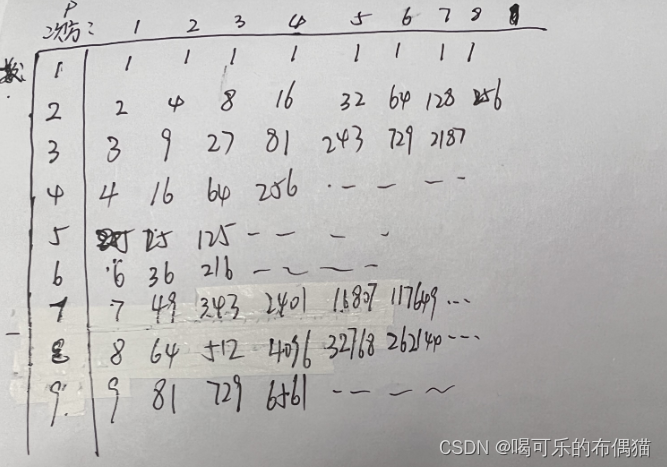 P
次方: 1 2 3 4 5 6 7 8
数:
1 1 1 1 1 1 1 1 1
2 2 4 8 16 32 64 128 256
3 3 9 27 81 243 729 2187
4 4 16 64 256 · — — — -
5 25 125 — — — -
6 6 36 216 — ~ — —
7 7 49 343 2401 16807 117649 ...
8 8 64 512 4096 32768 262140 ...
9 9 81 729 6561 — — ~ ~
CSDN @喝可乐的布偶猫